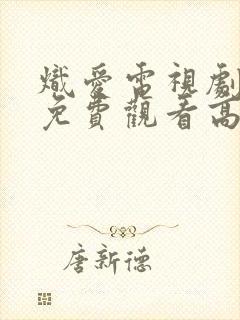 熾愛電視劇
免費觀看高
唐新德